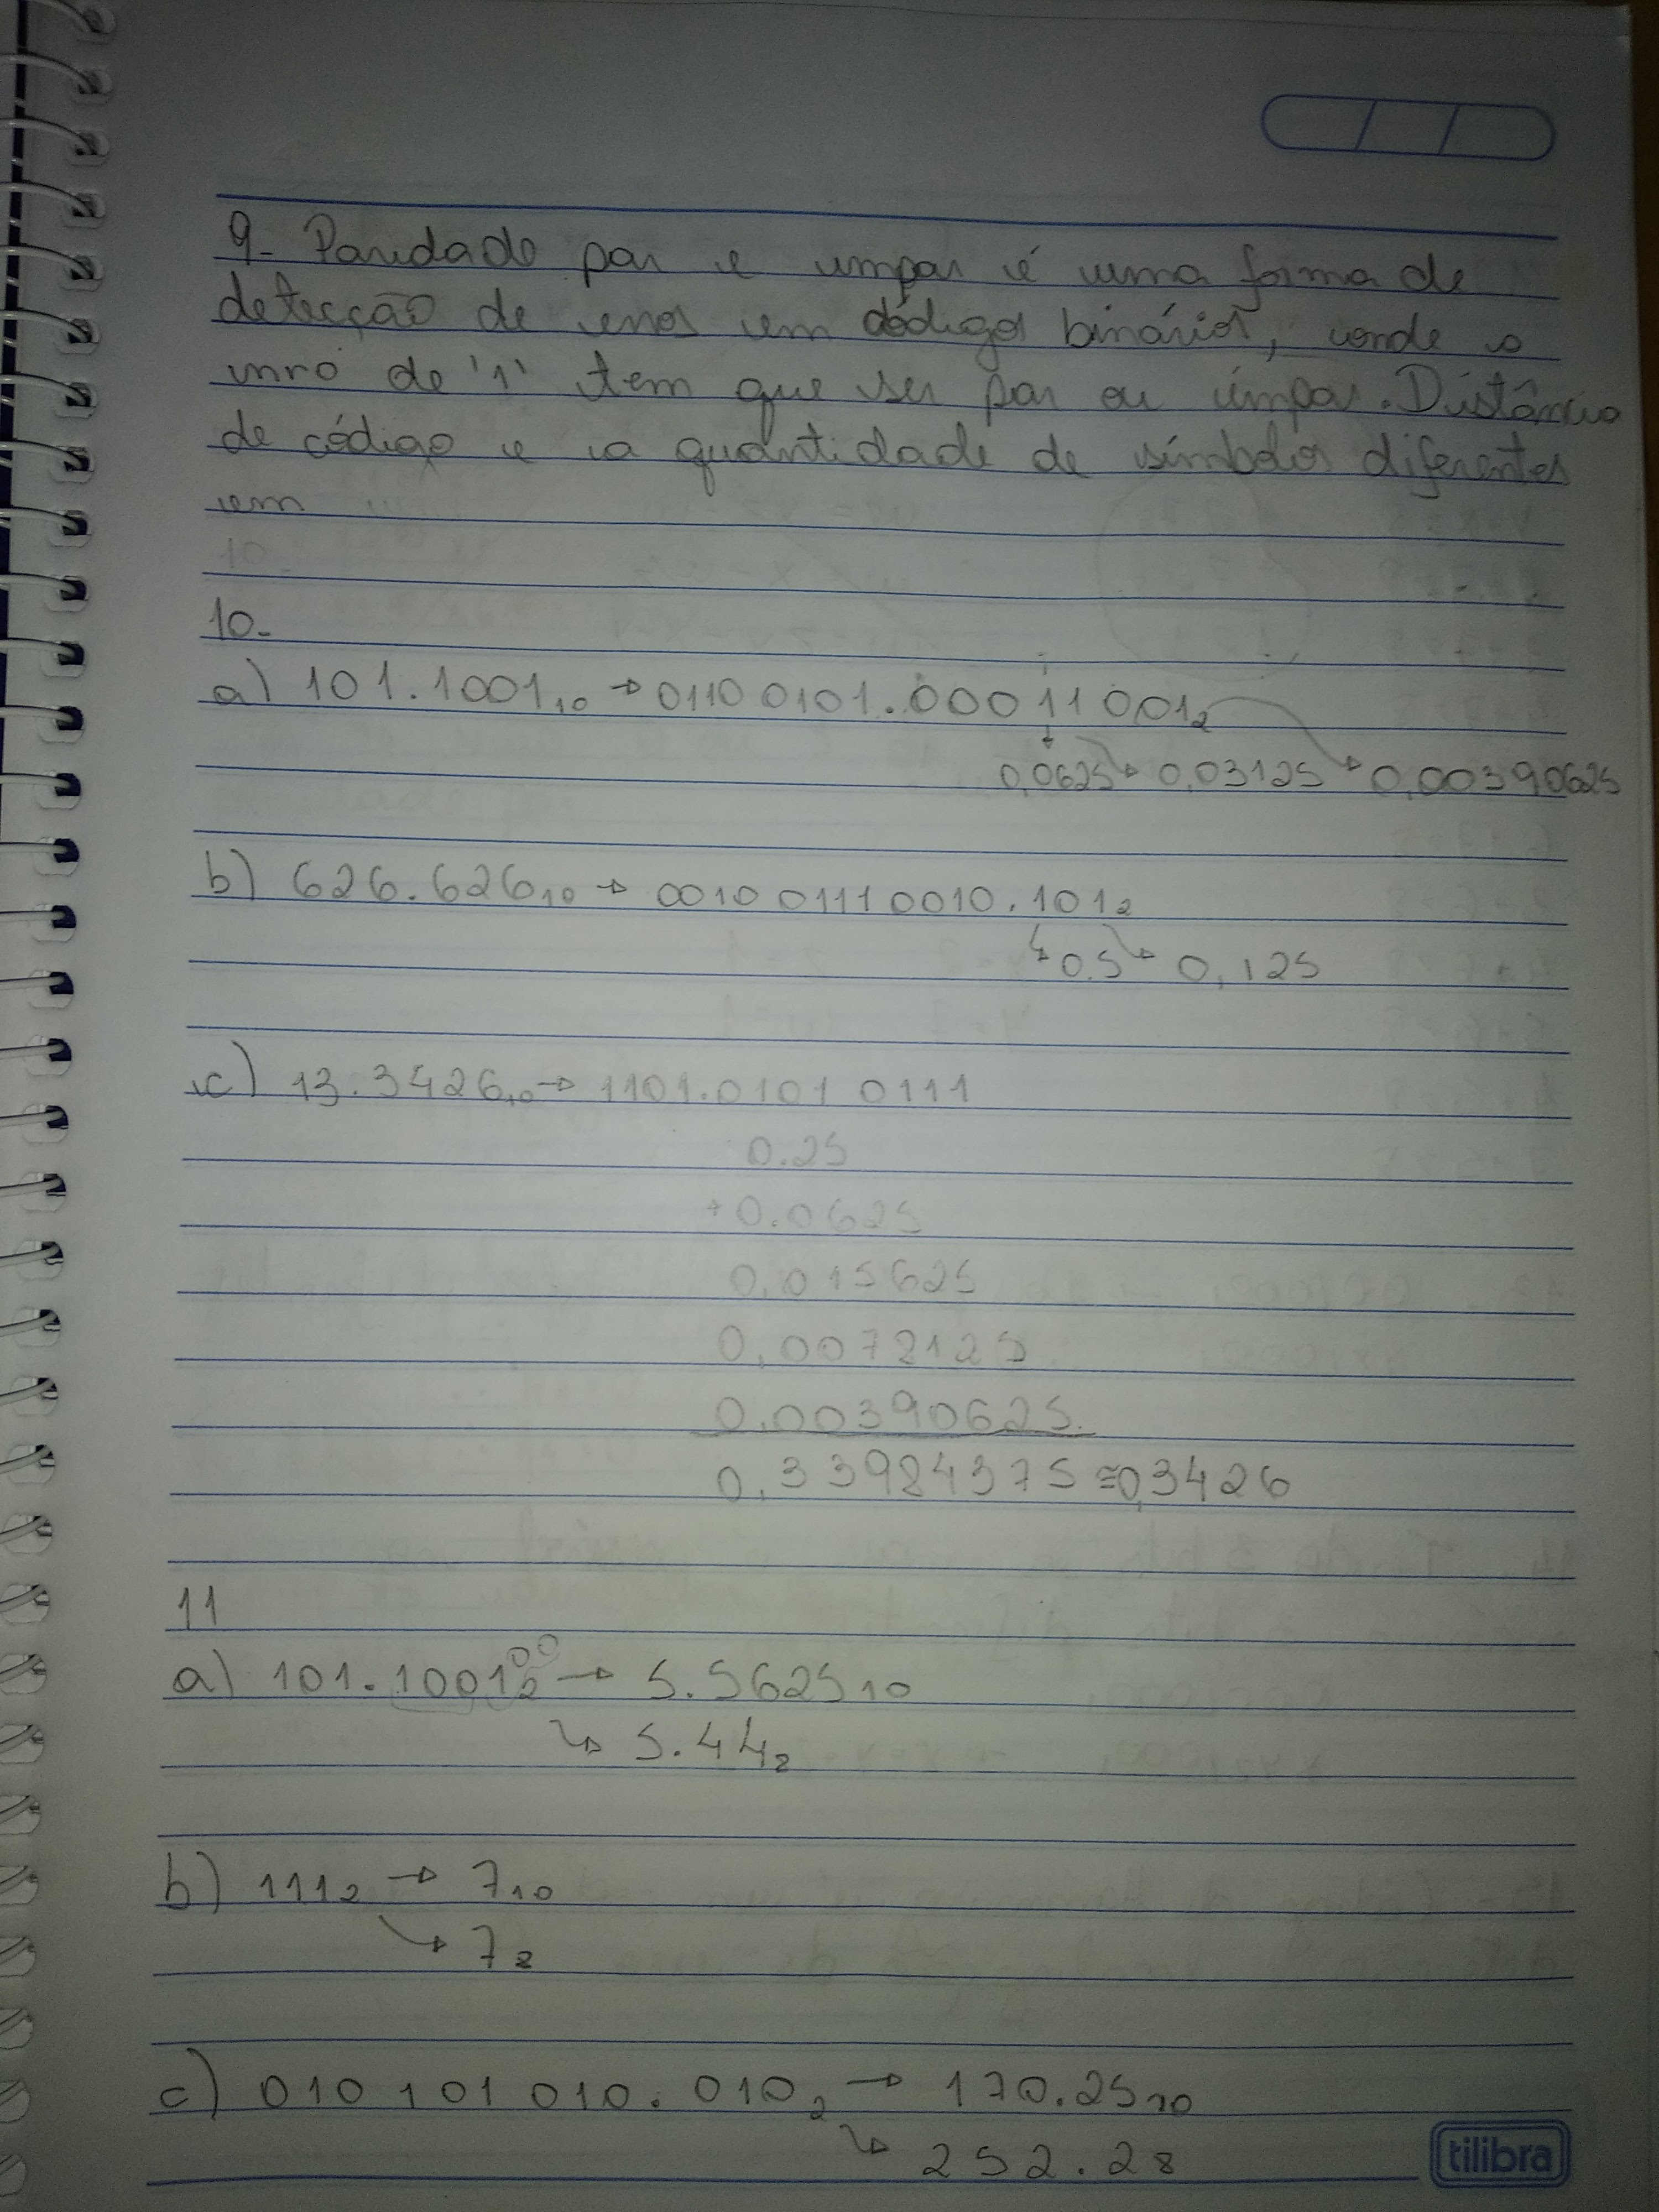 9- Paridade par e impar é uma forma de
detecção de erros em códigos binários, onde o
nro de '1' tem que ser par ou ímpar. Distância
de código e a quantidade de símbolos diferentes
em
10-
10-
a) 101.1001₁₀ → 0110 0101.00011001₂
0,0625 → 0,03125 → 0,00390625
b) 626.626₁₀ → 0010 0111 0010.101₂
↳ 0.5 ↳ 0,125
c) 13.3426₁₀ → 1101.0101 0111
0.25
+0.0625
0,015625
0,0078125
0,00390625
0,33984375 ≅ 0,3426
11
a) 101.1001₂ 00 → 5.5625₁₀
↳ 5.44₈
b) 111₂ → 7₁₀
↳ 7₈
c) 010 101 010.010₂ → 170.25₁₀
↳ 252.2₈
tilibra